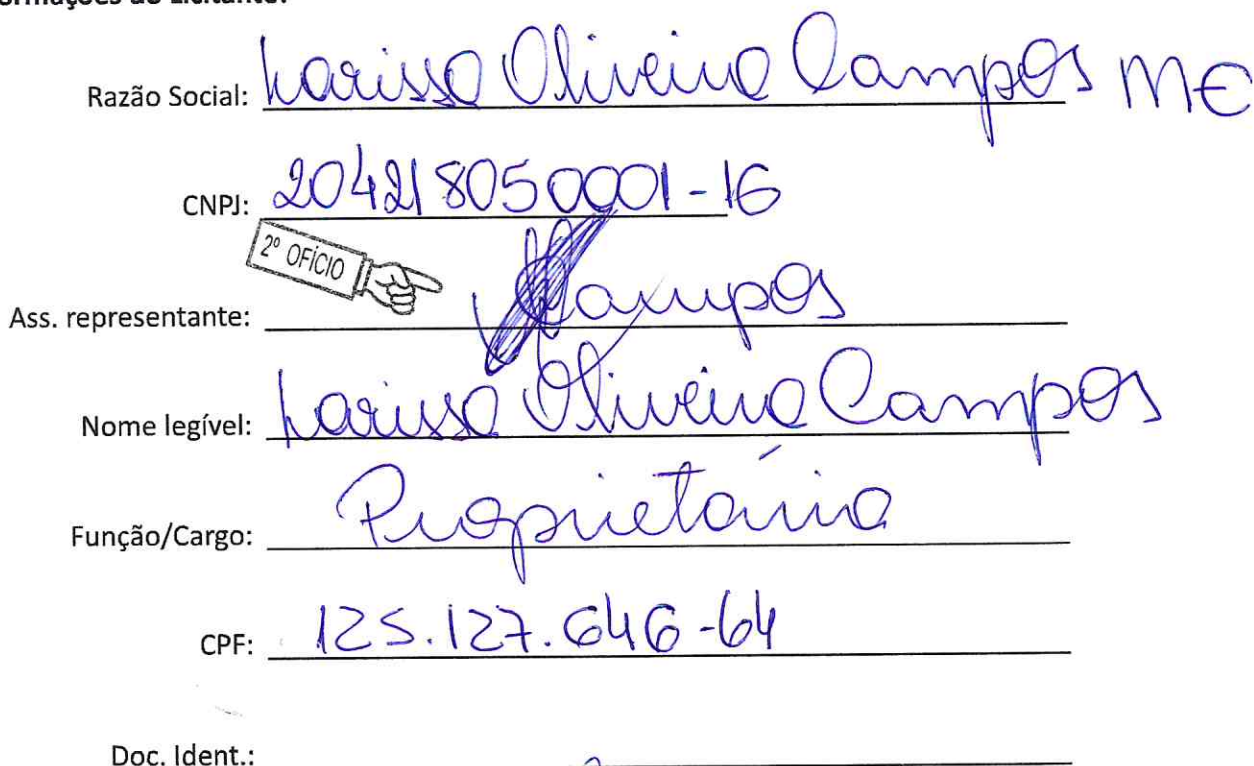 ormações do Licitante:
Razão Social: Larissa Oliveira Campos ME
CNPJ: 204218050001-16
2º OFÍCIO
Ass. representante: Campos
Nome legível: Larissa Oliveira Campos
Função/Cargo: Proprietária
CPF: 125.127.646-64
Doc. Ident.: